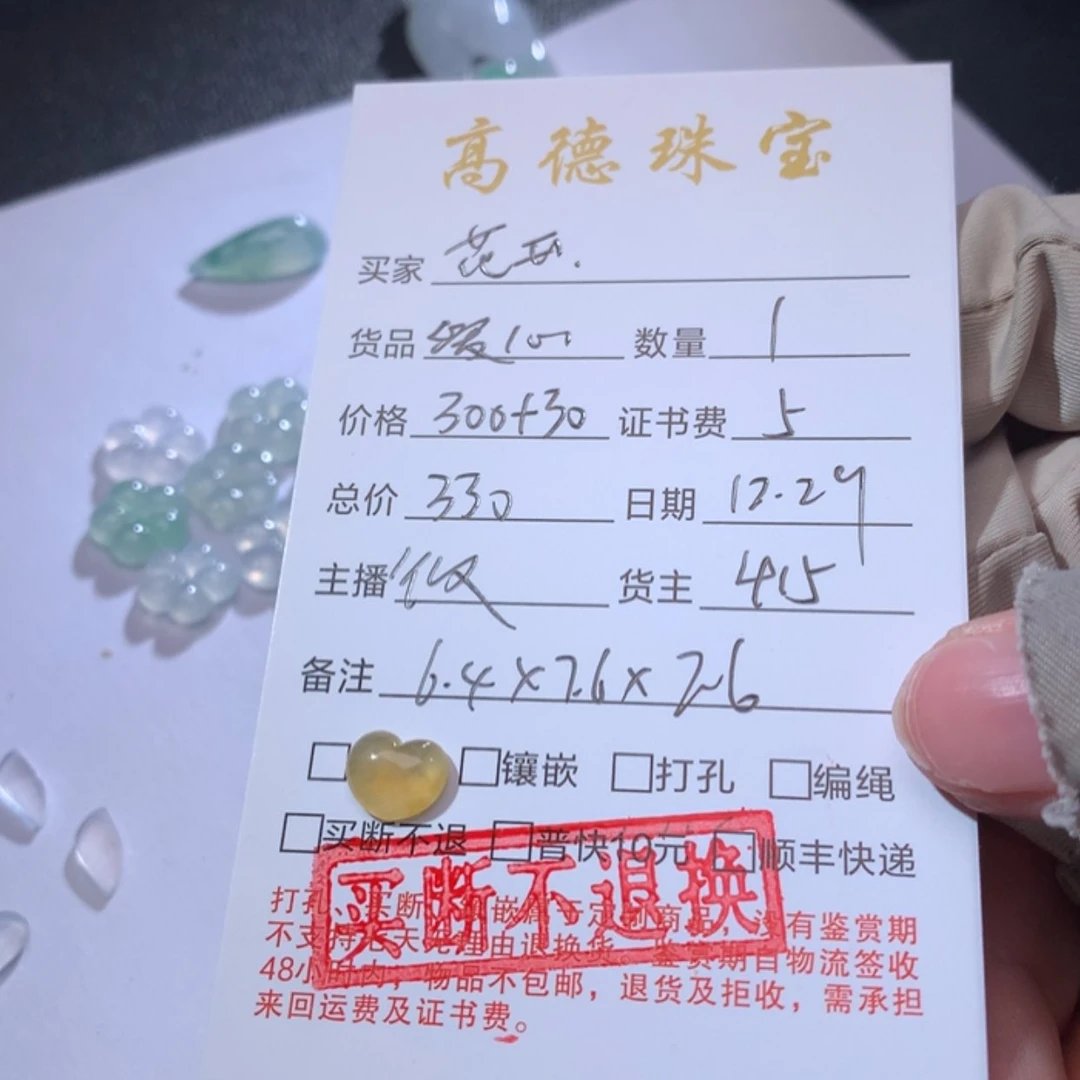 高德珠宝
买家 花开.
货品 数量 1
价格 300+30 证书费 5
总价 330 日期 12.29
主播 货主 415
备注 6.4×7.6×7.6
□ □镶嵌 □打孔 □编绳
□买断不退 □普快10元 □顺丰快递
买断不退换
打孔、买断 定制商品，没有鉴赏期
不支持 天无理由退换货，鉴赏期自物流签收
48小时内，物品不包邮，退货及拒收，需承担
来回运费及证书费。